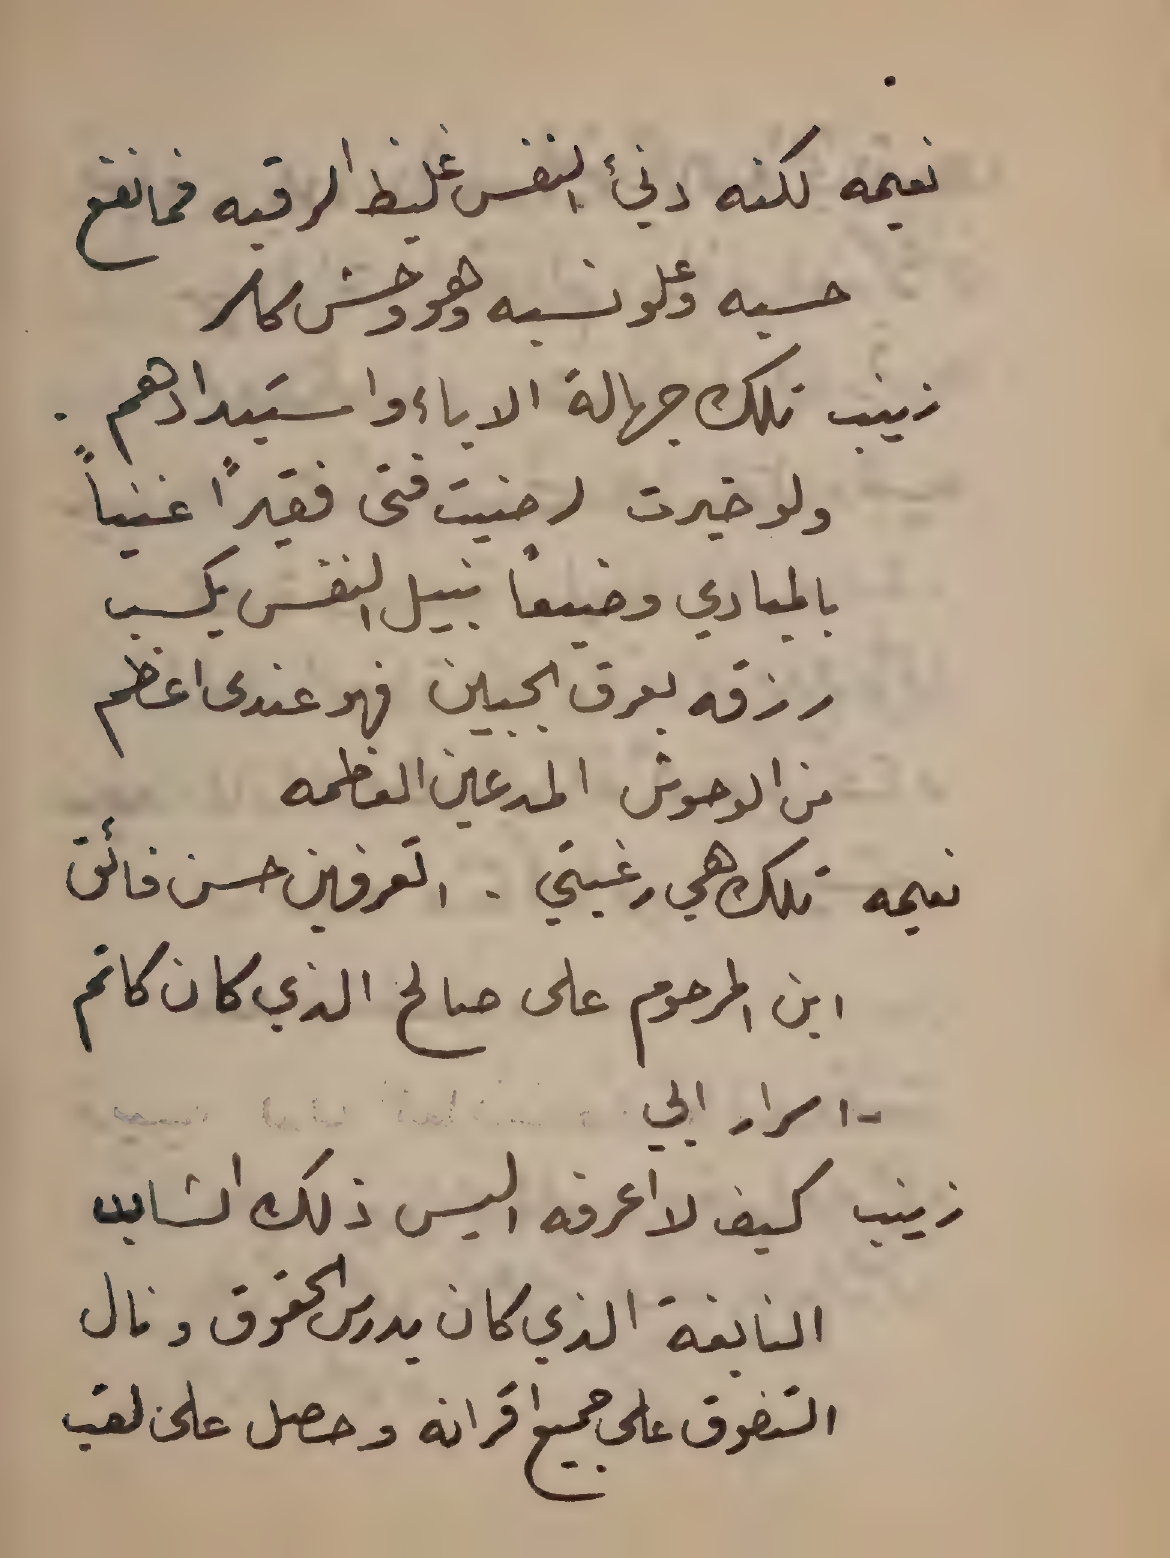 نعيمه لكنه دنئ النفس غليظ الرقبه فما نفع
حسبه وعلو نسبه وهو وحش كاسر
زينب تلك جهالة الاباء واستبدادهم .
ولو خيرت لرضيت فتى فقيرًا غنياً
بالمبادي وضيعًا نبيل النفس يكسب
رزقه بعرق الجبين فهو عندى اعظم
من الوحوش المدعين العظمه
نعيمه تلك هي رغبتي . اتعرفين حسن فائق
ابن المرحوم على صالح الذي كان كاتم
- اسرار ابي
زينب كيف لا اعرفه اليس ذلك الشاب
النابغة الذي كان يدرس الحقوق و نال
التفوق على جميع اقرانه و حصل على لقب